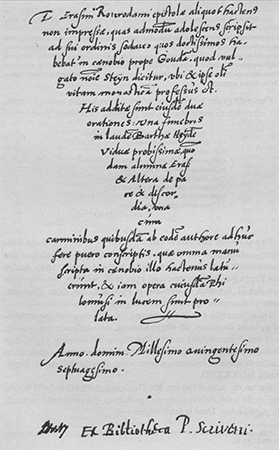 D. Erasmi Roterodami epistolæ aliquot hactenus
non impressæ, quas admodũ adolescens scripsit
ad sui ordinis sodales quos doctissimos ha-
bebat in cænobio prope Goudã, quod vul-
gato noie Steÿn dicitur, vbi & ipse oli
vitam monasticã professus est.
His additæ sunt eiusdẽ duæ
orationes: vna funebris
in laudẽ Barthæ Heÿdẽ
Viduæ probissimæ, quo-
dam alumnæ Eras
& Altera de pa-
ce & discor
dia, vna
cum
carminibus quibusdã ab eodẽ authore adhuc
fere puero conscriptis. quæ omnia manu
scripta in cænobio illo hactenus latu-
erunt, & iam opera cuiusdã Phi
lomusi in lucem sunt pro-
lata.
Anno. domini. Millesimo quingentesimo
septuagesimo.
Ex Bibliotheca P. Scriverii.